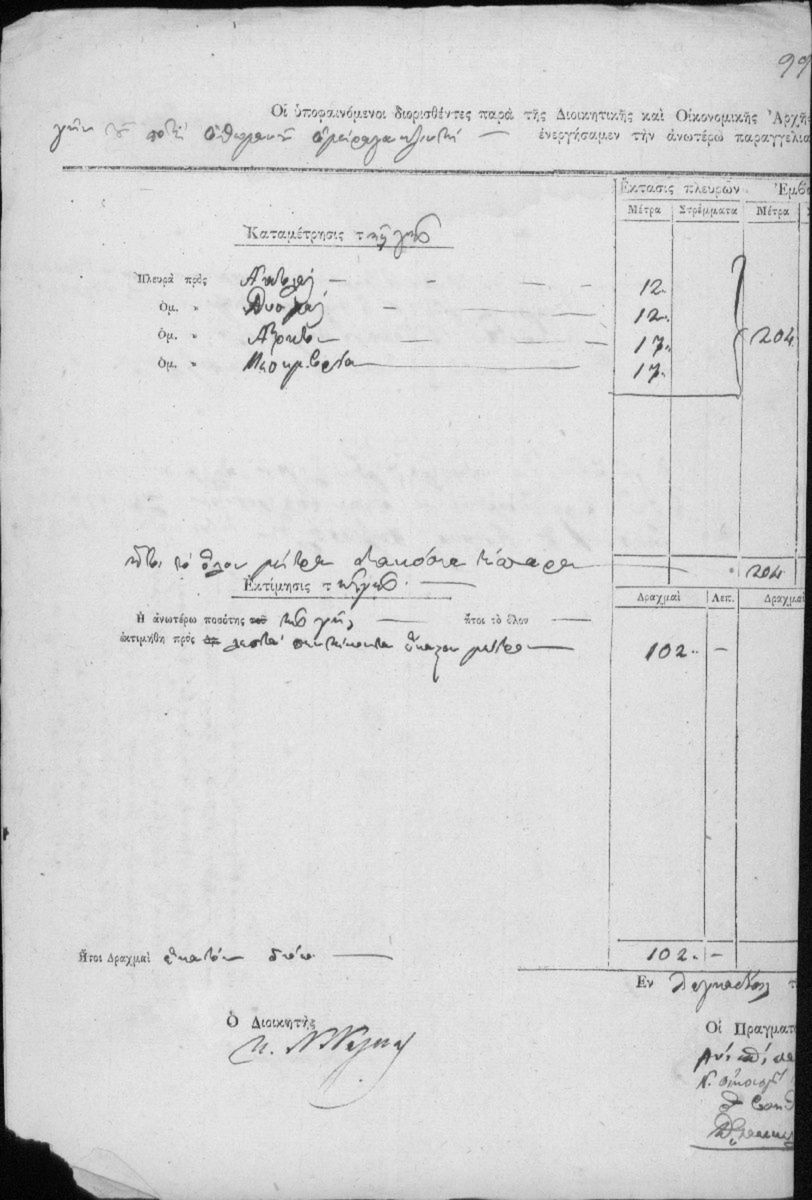 99
Οἱ ὑποφαινόμενοι διορισθέντες παρὰ τῆς Διοικητικῆς καὶ Οἰκονομικῆς Ἀρχῆς
ἐνεργήσαμεν τὴν ἀνωτέρω παραγγελία
Ἔκτασις πλευρῶν Ἐμβ
Μέτρα Στρέμματα Μέτρα
Καταμέτρησις τῆς γῆς
Πλευρὰ πρὸς Ἀνατολὰς — 12.
Ὁμ. » Δυσμὰς — 12.
Ὁμ. » Ἄρκτον — 17. 204
Ὁμ. » Μεσημβρίαν — 17.
ἤτοι τὸ ὅλον μέτρα διακόσια τέσσαρα — 204
Ἐκτίμησις τῆς γῆς.
Δραχμαὶ Λεπ. Δραχμαὶ
Ἡ ἀνωτέρω ποσότης τῆς γῆς — ἤτοι τὸ ὅλον —
ἐκτιμήθη πρὸς λεπτὰ πεντήκοντα ἕκαστον μέτρον — 102. —
Ἤτοι Δραχμαὶ ἑκατὸν δύο — 102. —
Ἐν
Ὁ Διοικητὴς
Οἱ Πραγματ